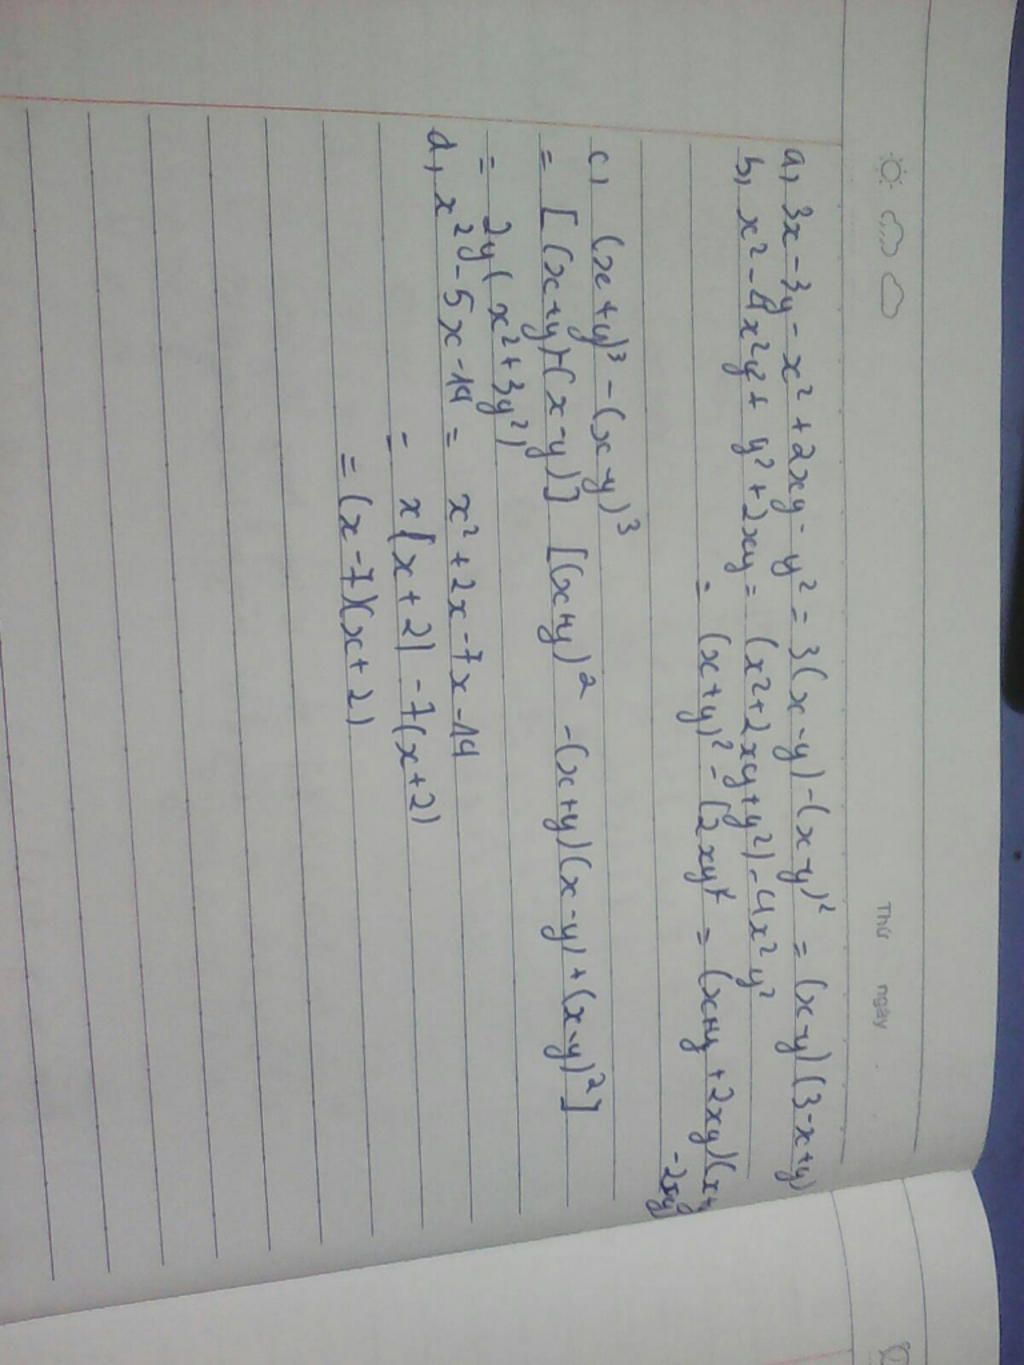 Thứ ngày
a, 3x - 3y - x² + 2xy - y² = 3(x - y) - (x - y)² = (x - y)(3 - x + y)
b, x² - 4x²y² + y² + 2xy = (x² + 2xy + y²) - 4x²y²
= (x + y)² - (2xy)² = (x + y + 2xy)(x + y
- 2xy)
c, (x + y)³ - (x - y)³
= [(x + y) - (x - y)] [(x + y)² - (x + y)(x - y) + (x - y)²]
= 2y(x² + 3y²)
d, x² - 5x - 14 = x² + 2x - 7x - 14
= x(x + 2) - 7(x + 2)
= (x - 7)(x + 2)